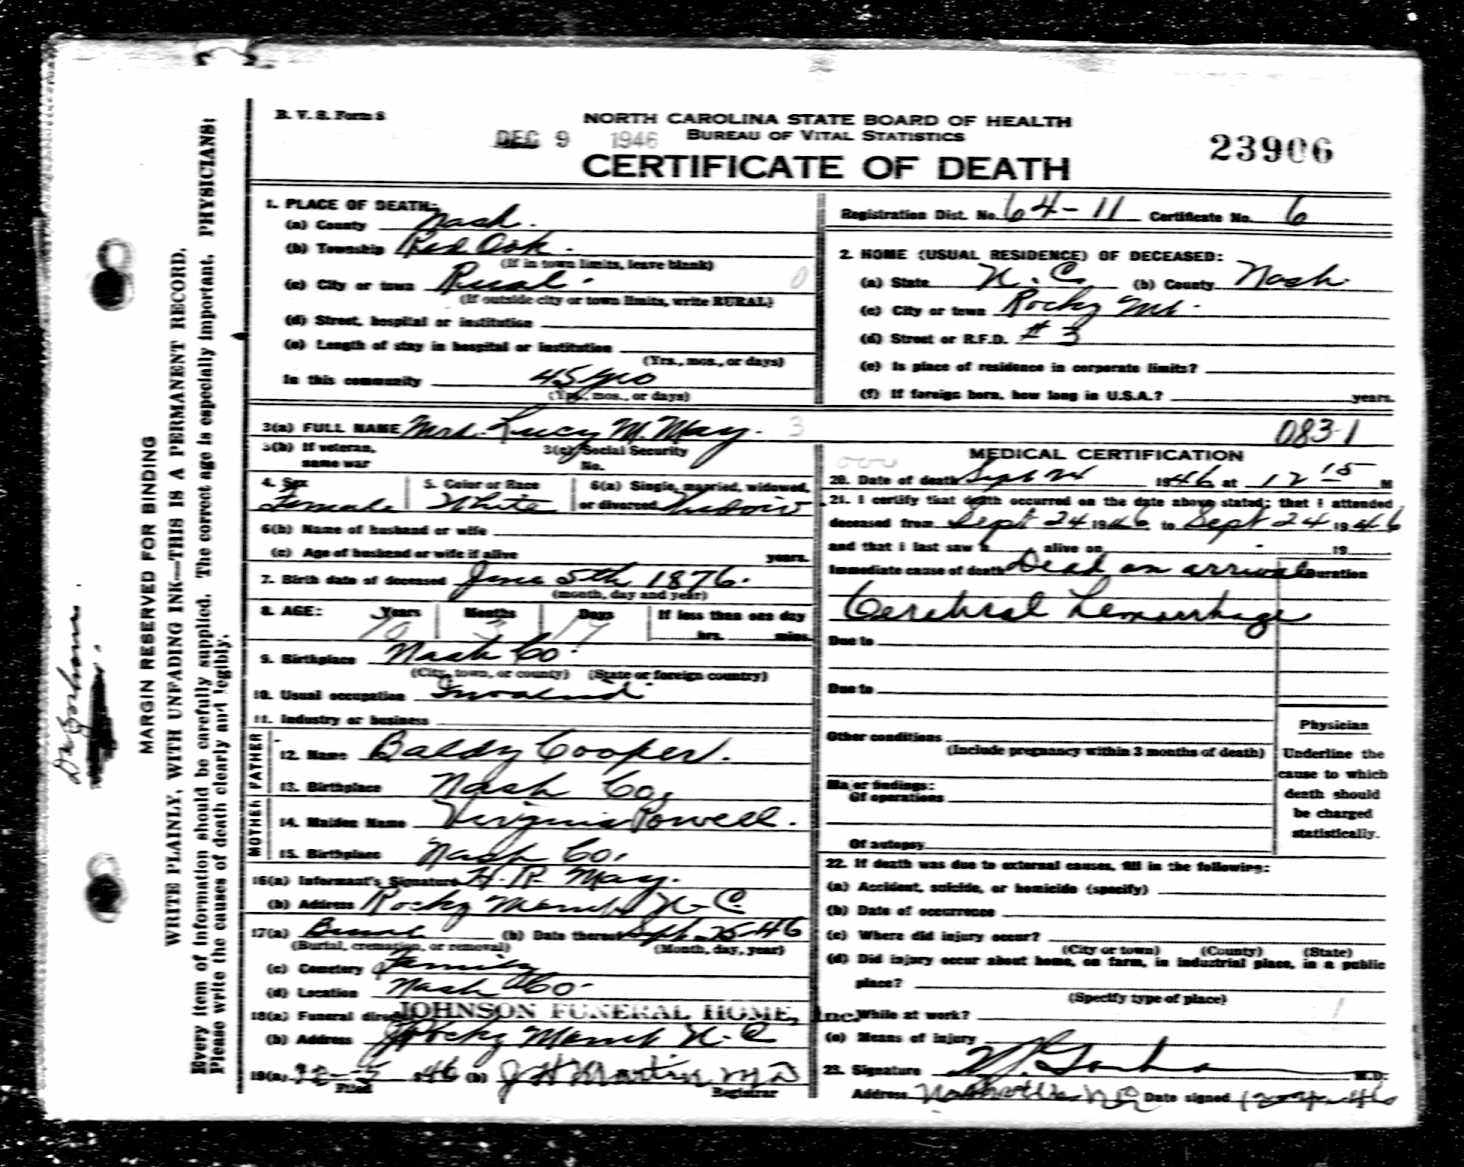 B. V. S. Form 8
NORTH CAROLINA STATE BOARD OF HEALTH
DEC 9 1946 BUREAU OF VITAL STATISTICS
CERTIFICATE OF DEATH
23906
1. PLACE OF DEATH:
(a) County Nash.
(b) Township Red Oak.
(If in town limits, leave blank)
(c) City or town Rural.
(If outside city or town limits, write RURAL)
(d) Street, hospital or institution
(e) Length of stay in hospital or institution
(Yrs., mos., or days)
In this community 45 yrs
(Yrs., mos., or days)
Registration Dist. No. 64-11 Certificate No. 6
2. HOME (USUAL RESIDENCE) OF DECEASED:
(a) State N.C. (b) County Nash.
(c) City or town Rocky Mt.
(d) Street or R.F.D. # 3
(e) Is place of residence in corporate limits?
(f) If foreign born, how long in U.S.A.? years.
3(a) FULL NAME Mrs. Lucy M. May. 3
083-1
3(b) If veteran,
name war
3(c) Social Security
No.
4. Sex
Female
5. Color or Race
White
6(a) Single, married, widowed,
or divorced Widow
6(b) Name of husband or wife
(c) Age of husband or wife if alive years.
7. Birth date of deceased June 5th 1876.
(month, day and year)
8. AGE: Years Months Days If less than one day
70 3 19 hrs. mins.
9. Birthplace Nash Co.
(City, town, or county) (State or foreign country)
10. Usual occupation Invalid
11. Industry or business
FATHER
12. Name Baldy Cooper.
13. Birthplace Nash Co.
MOTHER
14. Maiden Name Virginia Powell.
15. Birthplace Nash Co.
16(a) Informant's Signature H. R. May.
(b) Address Rocky Mount N.C.
17(a) Burial (b) Date thereof Sept. 25-46
(Burial, cremation, or removal) (Month, day, year)
(c) Cemetery Family
(d) Location Nash Co.
18(a) Funeral director JOHNSON FUNERAL HOME, Inc.
(b) Address Rocky Mount N.C
19(a) 46 (b) J H Martin MD
Filed Registrar
MEDICAL CERTIFICATION
20. Date of death Sept 24 1946 at 12 15 M
21. I certify that death occurred on the date above stated; that I attended
deceased from Sept 24 1946 to Sept 24 1946
and that I last saw h alive on 19
Immediate cause of death Dead on arrival Duration
Cerebral Hemorrhage
Due to
Due to
Other conditions
(Include pregnancy within 3 months of death)
Major findings:
Of operations
Of autopsy
Physician
Underline the
cause to which
death should
be charged
statistically.
22. If death was due to external causes, fill in the following:
(a) Accident, suicide, or homicide (specify)
(b) Date of occurrence
(c) Where did injury occur?
(City or town) (County) (State)
(d) Did injury occur about home, on farm, in industrial place, in a public
place?
(Specify type of place)
While at work?
(e) Means of injury
23. Signature M.D.
Address Nashville N.C Date signed
MARGIN RESERVED FOR BINDING
WRITE PLAINLY, WITH UNFADING INK—THIS IS A PERMANENT RECORD.
Every item of information should be carefully supplied. The correct age is especially important. PHYSICIANS:
Please write the causes of death clearly and legibly.